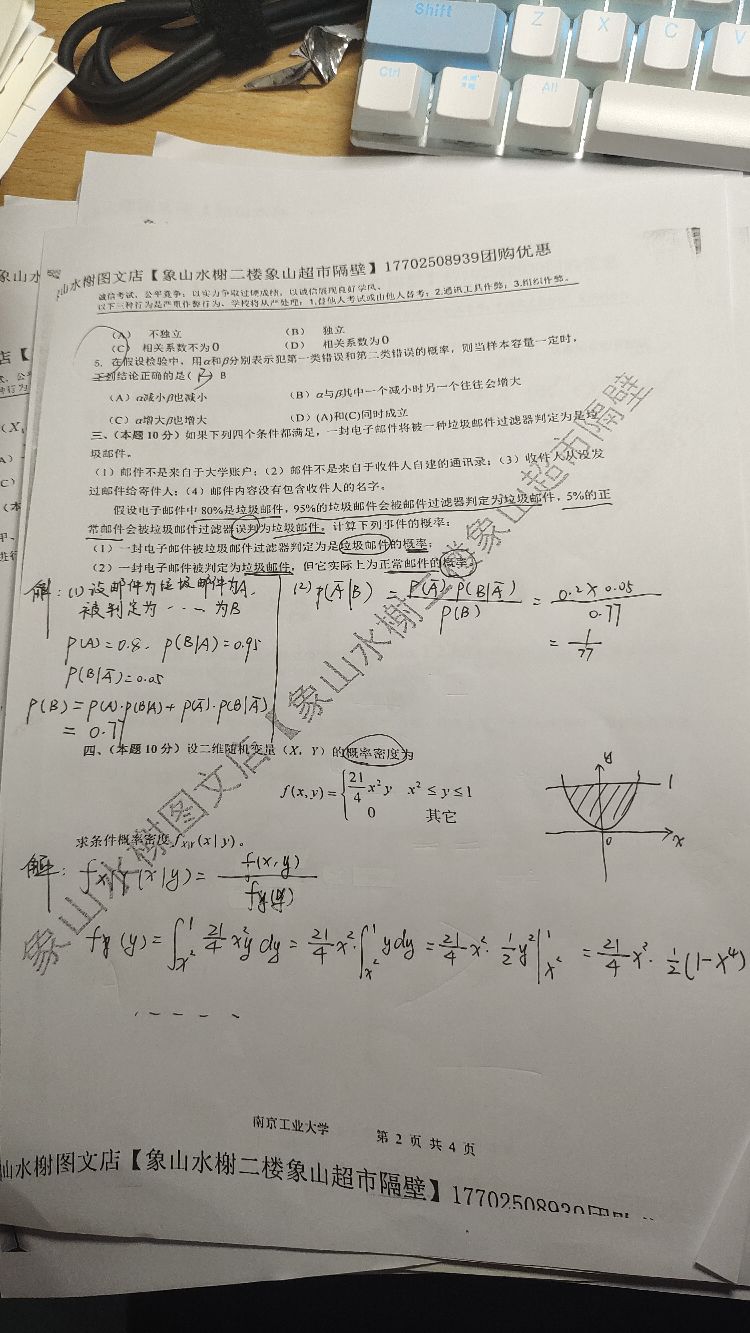 Shift
Z
X
C
V
Ctrl
Alt
山水榭图文店【象山水榭二楼象山超市隔壁】17702508939团购优惠
诚信考试，公平竞争；以实力争取过硬成绩，以诚信展现良好学风。
以下三种行为是严重作弊行为，学校将从严处理：1.替他人考试或由他人替考；2.通讯工具作弊；3.组织作弊。
（A） 不独立 （B） 独立
（C） 相关系数不为0 （D） 相关系数为0
5. 在假设检验中，用α和β分别表示犯第一类错误和第二类错误的概率，则当样本容量一定时，
下列结论正确的是（ ）B
（A）α减小β也减小 （B）α与β其中一个减小时另一个往往会增大
（C）α增大β也增大 （D）(A)和(C)同时成立
三、（本题10分）如果下列四个条件都满足，一封电子邮件将被一种垃圾邮件过滤器判定为是垃
圾邮件。
（1）邮件不是来自于大学账户；（2）邮件不是来自于收件人自建的通讯录；（3）收件人从没发
过邮件给寄件人；（4）邮件内容没有包含收件人的名字。
假设电子邮件中80%是垃圾邮件，95%的垃圾邮件会被邮件过滤器判定为垃圾邮件，5%的正
常邮件会被垃圾邮件过滤器误判为垃圾邮件。计算下列事件的概率：
（1）一封电子邮件被垃圾邮件过滤器判定为是垃圾邮件的概率；
（2）一封电子邮件被判定为垃圾邮件，但它实际上为正常邮件的概率。
解：(1) 设邮件为垃圾邮件为A，
被判定为 · · — 为B
P(A)=0.8. P(B|A)=0.95
P(B|Ā)=0.05
P(B)=P(A)·P(B|A)+P(Ā)·P(B|Ā)
= 0.77
(2) P(Ā|B) = P(Ā)·P(B|Ā) / P(B) = 0.2×0.05 / 0.77
= 1/77
四、（本题10分）设二维随机变量（X，Y）的概率密度为
f(x,y)={21/4 x²y x²≤y≤1
0 其它
y
1
0
x
求条件概率密度 f_{X|Y}(x|y)。
解：f_{X|Y}(x|y)= f(x,y) / f_Y(y)
f_Y(y)=∫_{x²}^{1} 21/4 x²y dy = 21/4 x²·∫_{x²}^{1} y dy = 21/4 x²·1/2 y²|_{x²}^{1} = 21/4 x²·1/2(1-x⁴)
南京工业大学 第 2 页 共 4 页
山水榭图文店【象山水榭二楼象山超市隔壁】17702508939团购
象山水榭图文店【象山水榭二楼象山超市隔壁